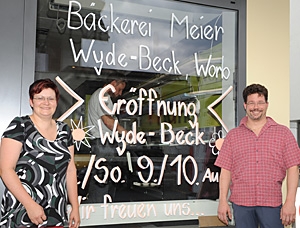 Bäckerei Meier
Wyde-Beck Worb
Eröffnung
Wyde-Beck
/So. 9/10 Au
Wir freuen uns...